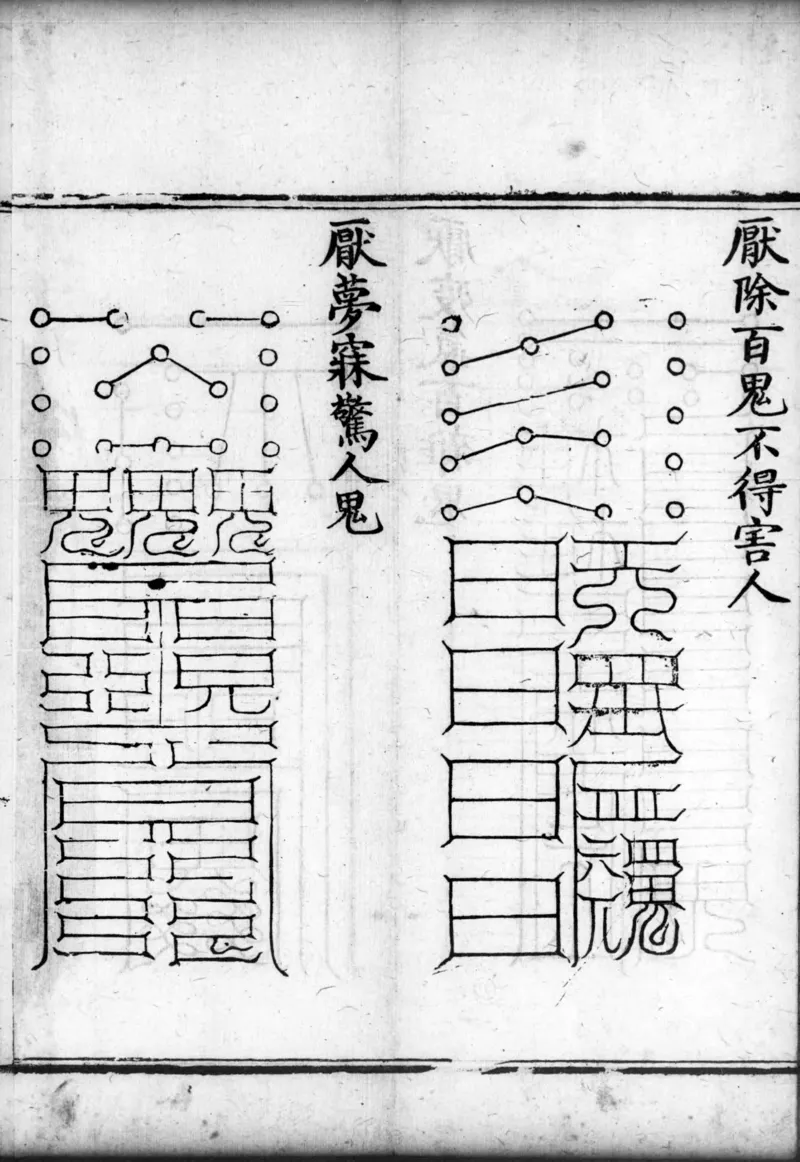 厭除百鬼不得害人
厭夢寐驚人鬼